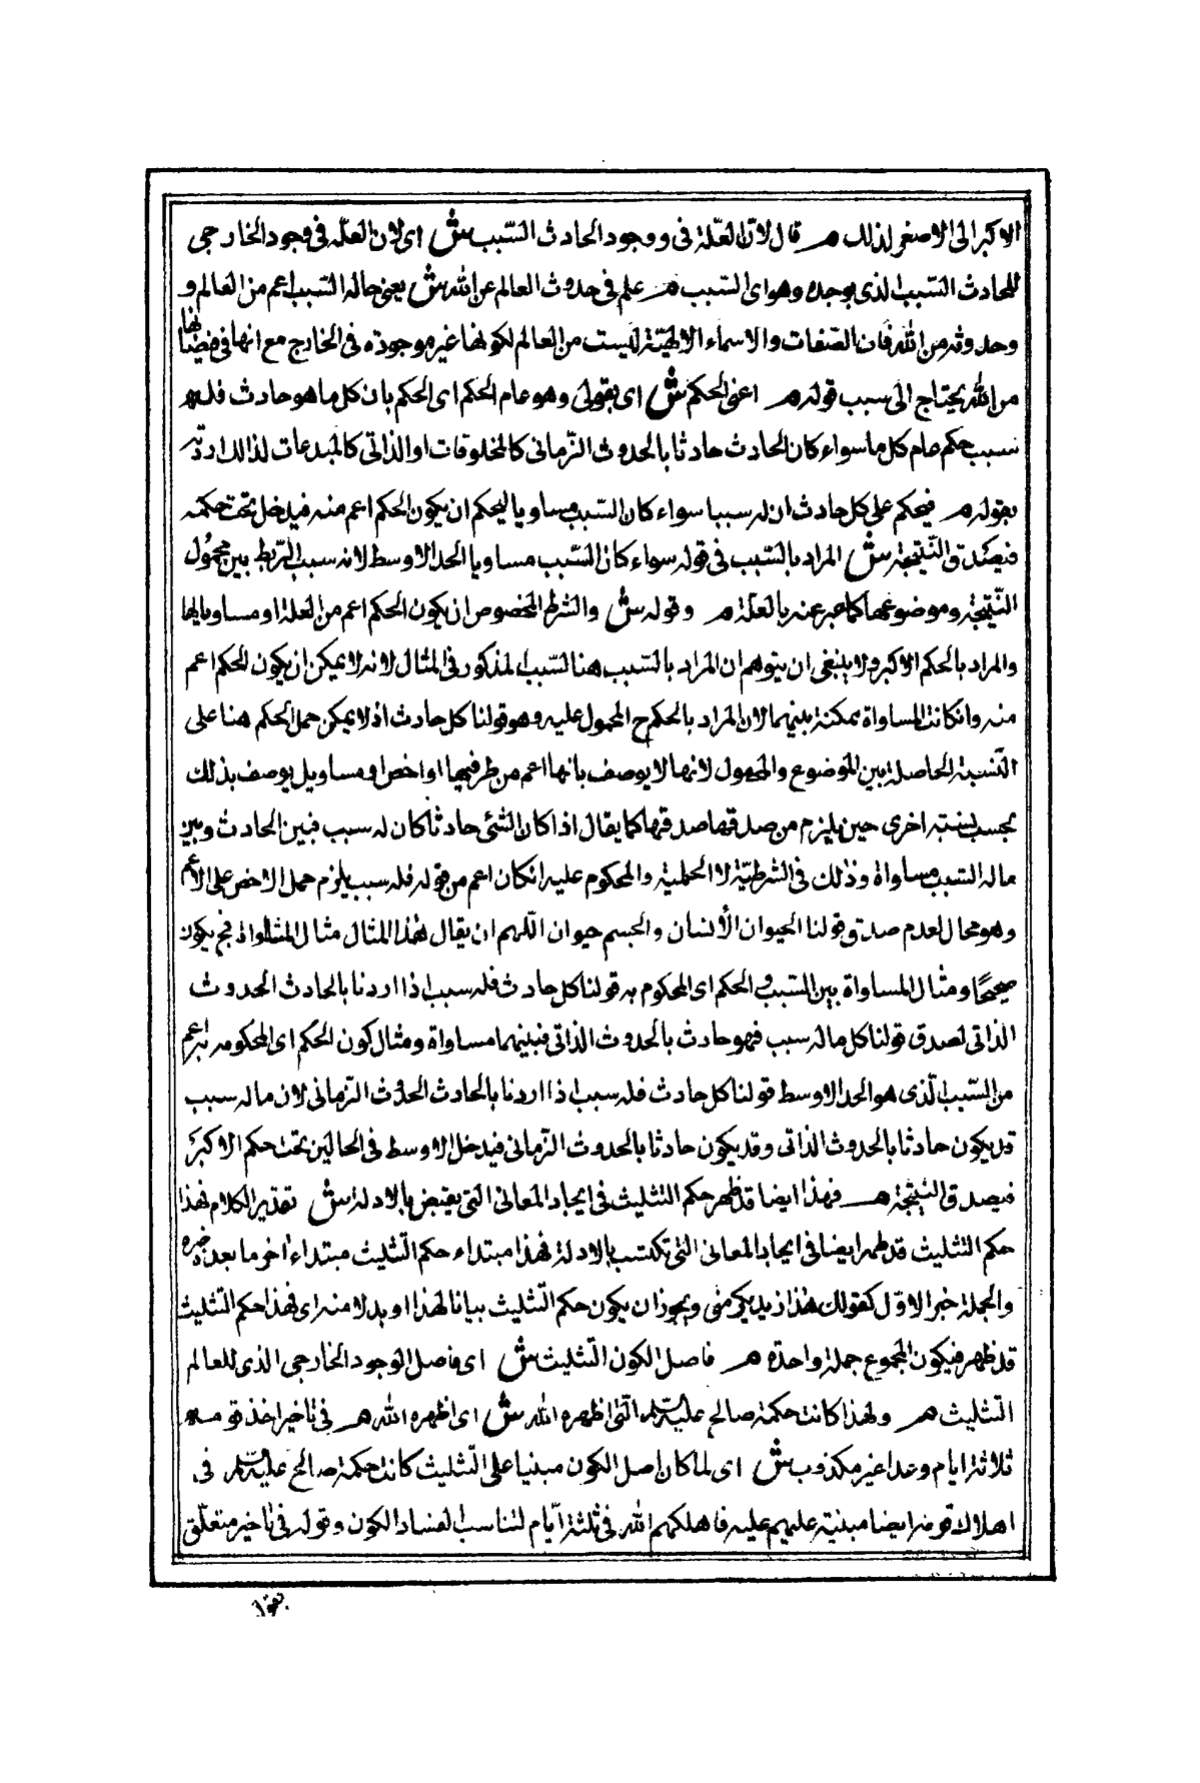 الاكبر الى الاصغر لذلك م قال لان العلة فى ووجود الحادث السبب ش اى لان العلة فى وجود الخارجى
للحادث السبب الذى يوجده وهو اى السبب م علم فى حدوث العالم عن الله ش يعنى حاله السبب اعم من العالم و
وحدوثه من الله فان الصفات والاسماء الالهية ليست من العالم لكونها غير موجودة فى الخارج مع انها فى فيضانها
من الله يحتاج الى سبب قوله م اعنى الحكم ش اى بقولى وهو عام الحكم اى الحكم بان كل ما هو حادث فله
سبب حكم عام كل ما سواء كان الحادث حادثا بالحدوث الزمانى كالمخلوقات او الذاتى كالمبدعات لذالك اردته
بقوله م فيحكم على كل حادث ان له سببا سواء كان السبب مساويا ليحكم ان يكون الحكم اعم منه فيدخل تحت حكمه
فيصدق النتيجة ش المراد بالسبب فى قوله سواء كان السبب مساويا الحد الاوسط لانه سبب الربط بين محمول
النتيجة وموضوعها كما عبر عنه بالعلة م وقوله ش والشرط المخصوص ان يكون الحكم اعم من العلة او مساويا لها
والمراد بالحكم الاكبر ولا ينبغى ان يتوهم ان المراد بالسبب هنا السبب المذكور فى المثال لانه لا يمكن ان يكون الحكم اعم
منه وانكانت المساواة ممكنة بينهما لان المراد بالحكم ح المحمول عليه وهو قولنا كل حادث اذ لا يمكن حمل الحكم هنا على
النسبة الحاصلة بين الموضوع والمحمول لانها لا يوصف بانها اعم من طرفيها او اخص او مساو بل يوصف بذلك
بحسب نسبته اخرى حين يلزم من صدقها صدقها كما يقال اذا كان الشئ حادثا كان له سبب فبين الحادث وبين
ماله السبب مساواة وذلك فى الشرطية لا الحملية والمحكوم عليه انكان اعم من قوله فله سبب يلزم حمل الاخص على الاعم
وهو محال لعدم صدق قولنا الحيوان الانسان والجسم حيوان اللهم ان يقال هذا المثال مثال المساواة فح يكون
صحيحا ومثال المساواة بين السبب والحكم اى المحكوم به قولنا كل حادث فله سبب اذا اردنا بالحادث الحدوث
الذاتى لصدق قولنا كل ماله سبب فهو حادث بالحدوث الذاتى فبينهما مساواة ومثال كون الحكم اى المحكوم به اعم
من السبب الذى هو الحد الاوسط قولنا كل حادث فله سبب اذا اردنا بالحادث الحدوث الزمانى لان ماله سبب
قد يكون حادثا بالحدوث الذاتى وقد يكون حادثا بالحدوث الزمانى فيدخل الاوسط فى الحالين تحت حكم الاكبر
فيصدق النتيجة م فهذا ايضا قد ظهر حكم التثليث فى ايجاد المعانى التى يقتنص بالادلة ش تقدير الكلام فهذا
حكم التثليث قد ظهر ايضا فى ايجاد المعانى التى تكتسب بالادلة فهذا مبتداء حكم التثليث مبتداء اخر ما بعده خبره
والجملة خبر الاول كقولك هذا زيد يكرمنى ويجوز ان يكون حكم التثليث بيانا لهذا او بدلا منه اى فهذا حكم التثليث
قد ظهر فيكون المجموع جملة واحدة م فاصل الكون التثليث ش اى فاصل الوجود الخارجى الذى للعالم
التثليث م ولهذا كانت حكمة صالح عليه السلام التى اظهره الله ش اى اظهره الله م فى تاخير اخذ قومه
ثلاثة ايام وعدا غير مكذوب ش اى لما كان اصل الكون مبنيا على التثليث كانت حكمة صالح عليه السلام فى
اهلاك قومه ايضا مبنية عليهم عليه فاهلكهم الله فى ثلثة ايام لتناسب الفساد الكون وقوله فى تاخير متعلق
بقوله